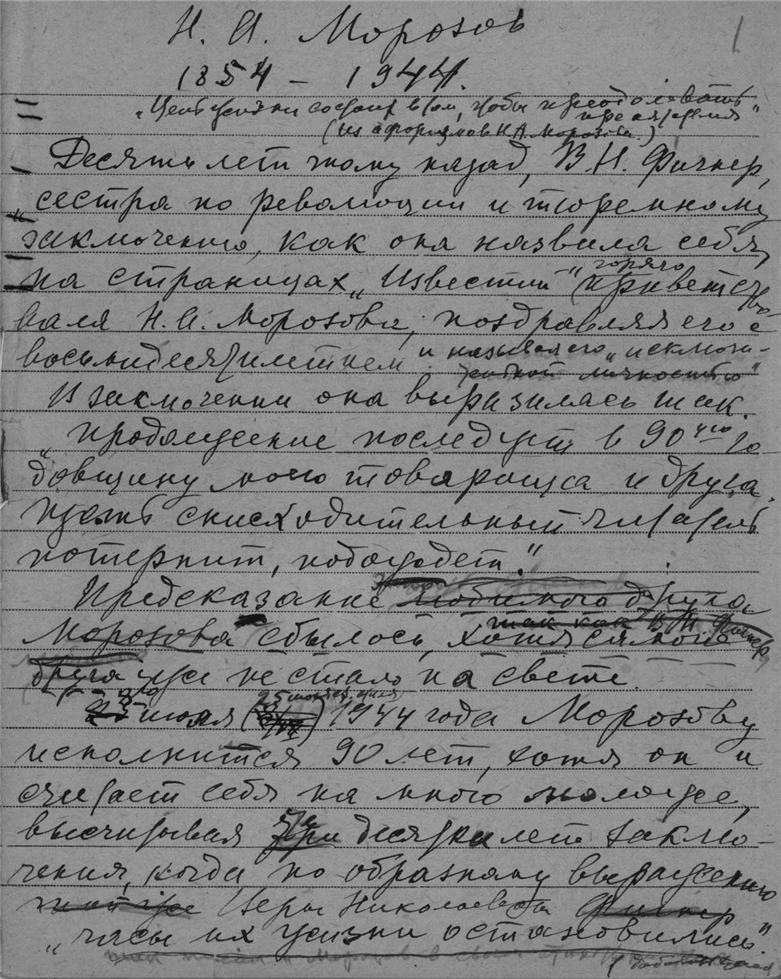 Н. А. Морозов
1
1854 – 1944.
„Цель жизни состоит в том, чтобы преодолевать
препятствия"
(Из афоризмов Н.А. Морозова.)
Десять лет тому назад, В.Н. Фигнер,
„сестра по революции и тюремному
заключению, как она назвала себя,
на страницах „Известий" горячо приветство-
вала Н.А. Морозова, поздравляя его с
восьмидесятилетием и называя его „исключи-
тельной личностью"
В заключении она выразилась так.
„Продолжение последует в 90ую го
довщину моего товарища и друга.
Пусть снисходительный читатель
потерпит, подождет."
Предсказание любимого друга
Морозова сбылось, хотя самого
так как В.Н. Фигнер
друга уже не стало на свете.
июля 1944 года Морозову
исполнится 90 лет, хотя он и
считает себя на много моложе,
высчитывая три десятка лет заклю-
чения, когда по образному выражению
той же Веры Николаевны Фигнер
„часы их жизни остановились."